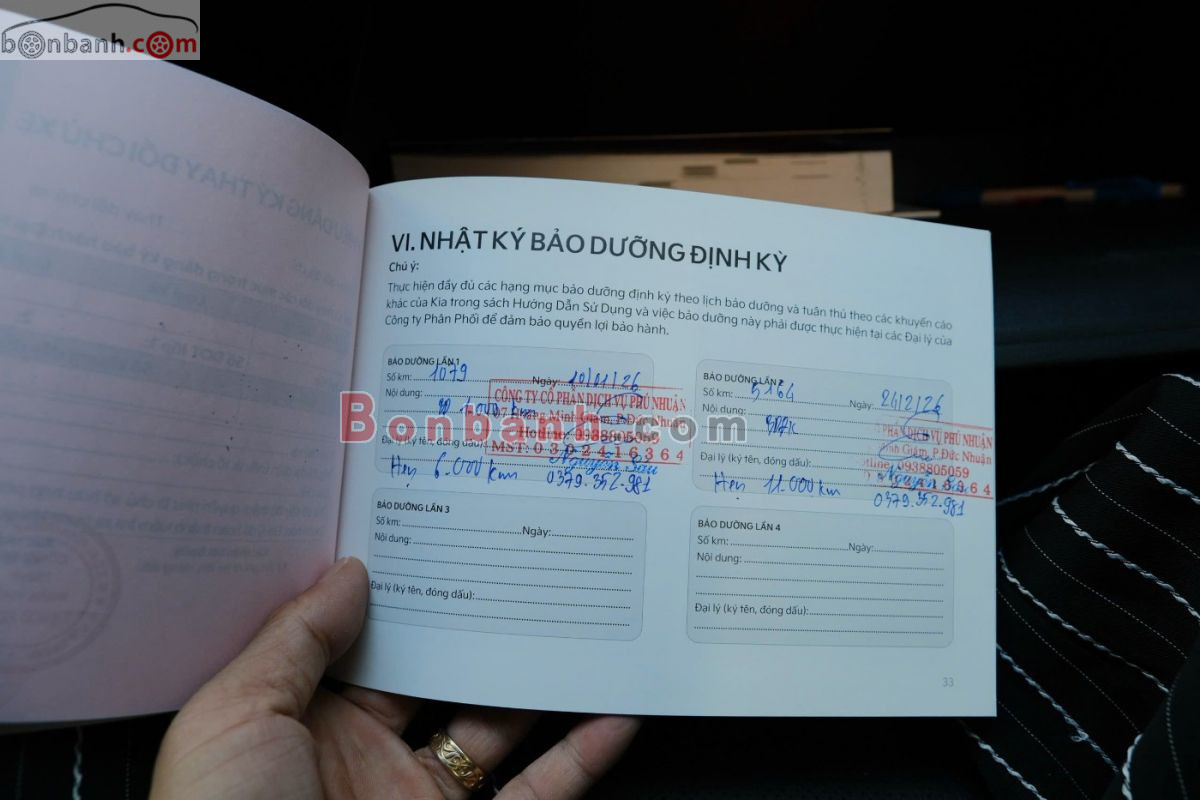 bonbanh.com
VI. NHẬT KÝ BẢO DƯỠNG ĐỊNH KỲ
Chú ý:
Thực hiện đầy đủ các hạng mục bảo dưỡng định kỳ theo lịch bảo dưỡng và tuân thủ theo các khuyến cáo
khác của Kia trong sách Hướng Dẫn Sử Dụng và việc bảo dưỡng này phải được thực hiện tại các Đại lý của
Công ty Phân Phối để đảm bảo quyền lợi bảo hành.
BẢO DƯỠNG LẦN 1
Số km: 1079 Ngày: 10/01/26
Nội dung: 1.000 km
CÔNG TY CỔ PHẦN DỊCH VỤ PHÚ NHUẬN
Hoàng Minh Giám, P.Đức Nhuận
Hotline: 0938805059
MST: 0302416364
Đại lý (ký tên, đóng dấu):
Hẹn 6.000 km 0379.352.981
BẢO DƯỠNG LẦN 2
Số km: 5164 Ngày: 24/2/26
Nội dung:
PHẦN DỊCH VỤ PHÚ NHUẬN
Minh Giám, P.Đức Nhuận
0938805059
Đại lý (ký tên, đóng dấu):
Hẹn 11.000 km 0379.352.981
Bonbanh.com
BẢO DƯỠNG LẦN 3
Số km: Ngày:
Nội dung:
Đại lý (ký tên, đóng dấu):
BẢO DƯỠNG LẦN 4
Số km: Ngày:
Nội dung:
Đại lý (ký tên, đóng dấu):
33